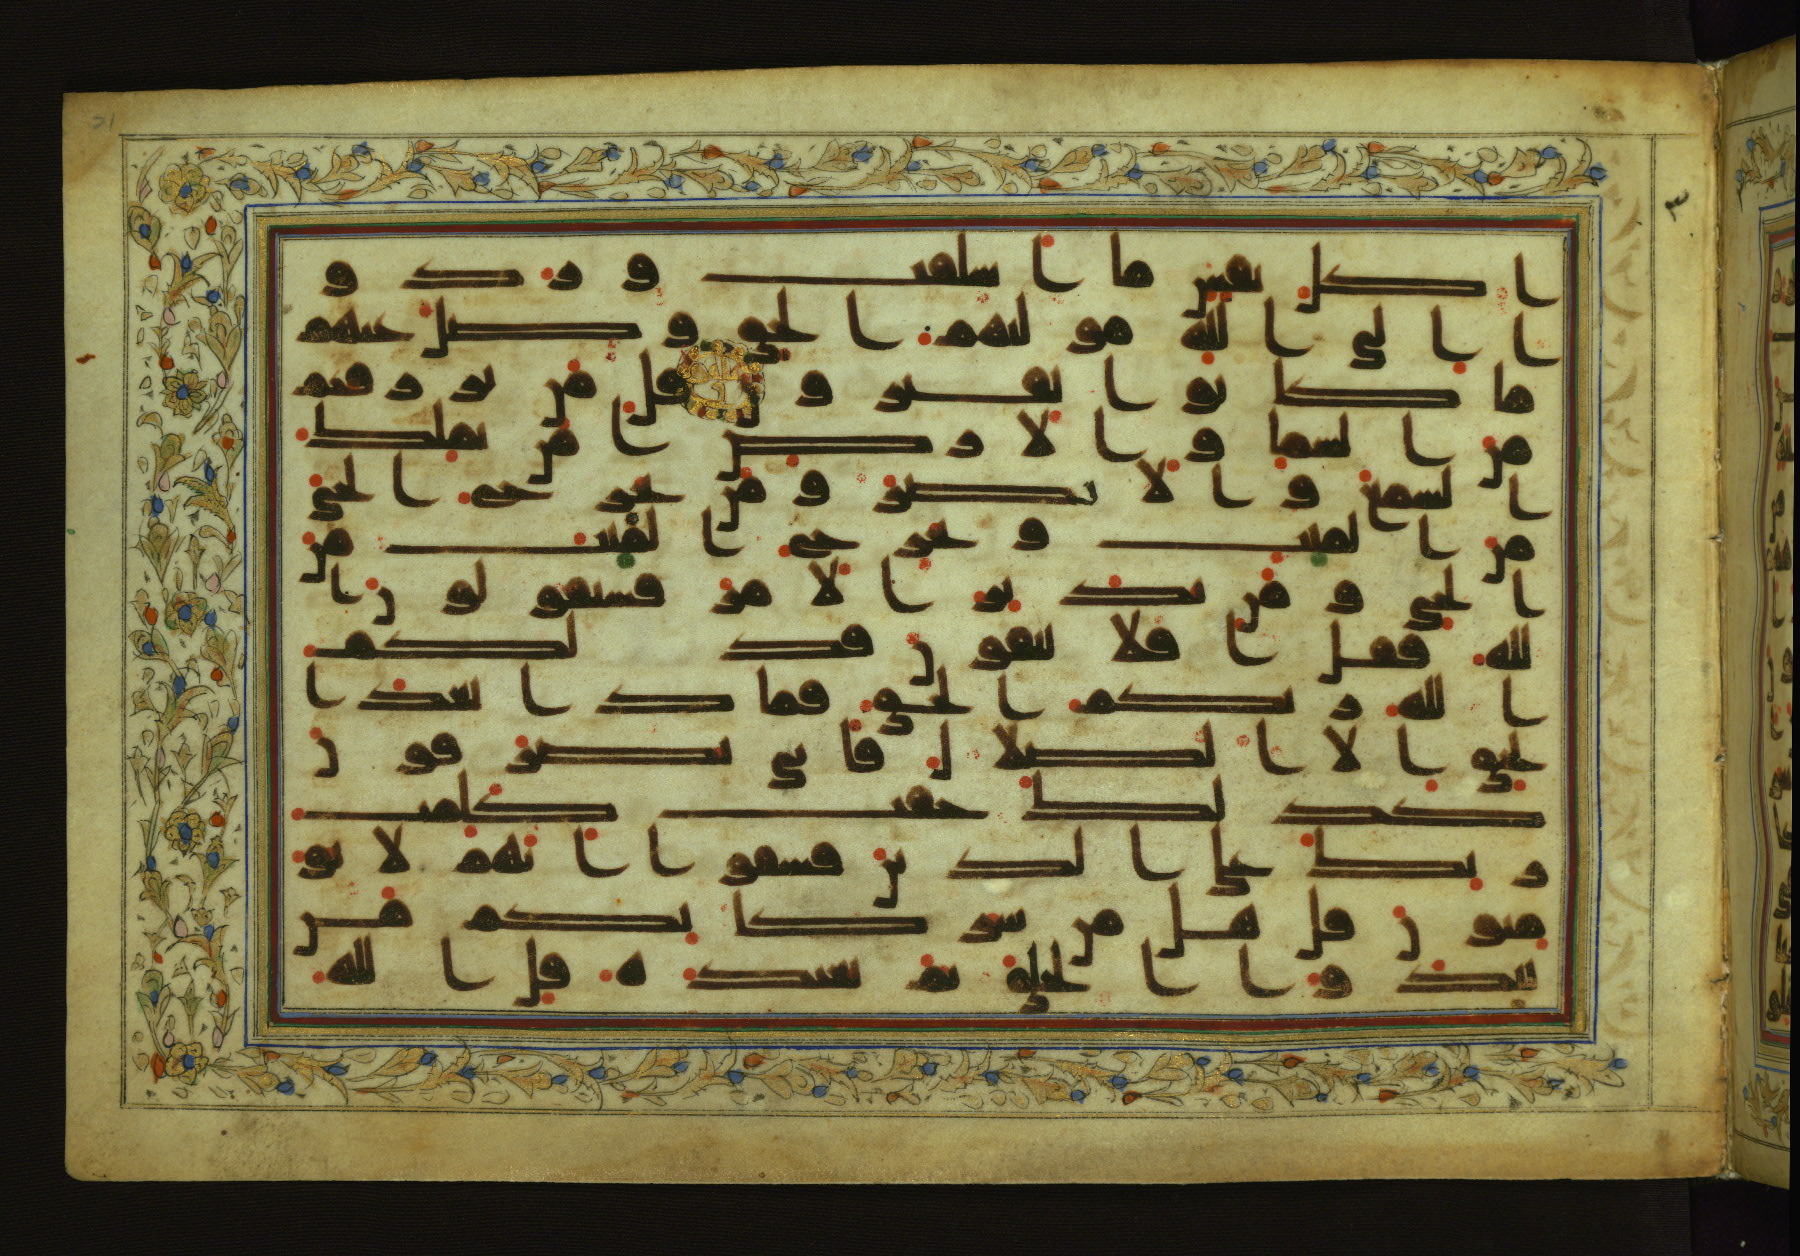 ا كل نفس ما اسلفت وردو
ا الى الله موليهم الحق وضل عنهم
ما كانوا يفترون قل من يرزقكم
من السما والارض امن يملك
السمع والابصر ومن يخرج الحى
من الميت ويخرج الميت من
الحى ومن يدبر الامر فسيقولون ا
لله فقل افلا تتقون فذلكم
الله ربكم الحق فماذا بعد ا
لحق الا الضلل فانى تصرفون
كذلك حقت كلمت
ربك على الذين فسقوا انهم لا يو
منون قل هل من شركاكم من
يبدوا الخلق ثم يعيده قل الله